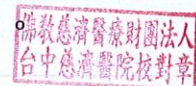 佛教慈濟醫療財團法人
台中慈濟醫院校對章